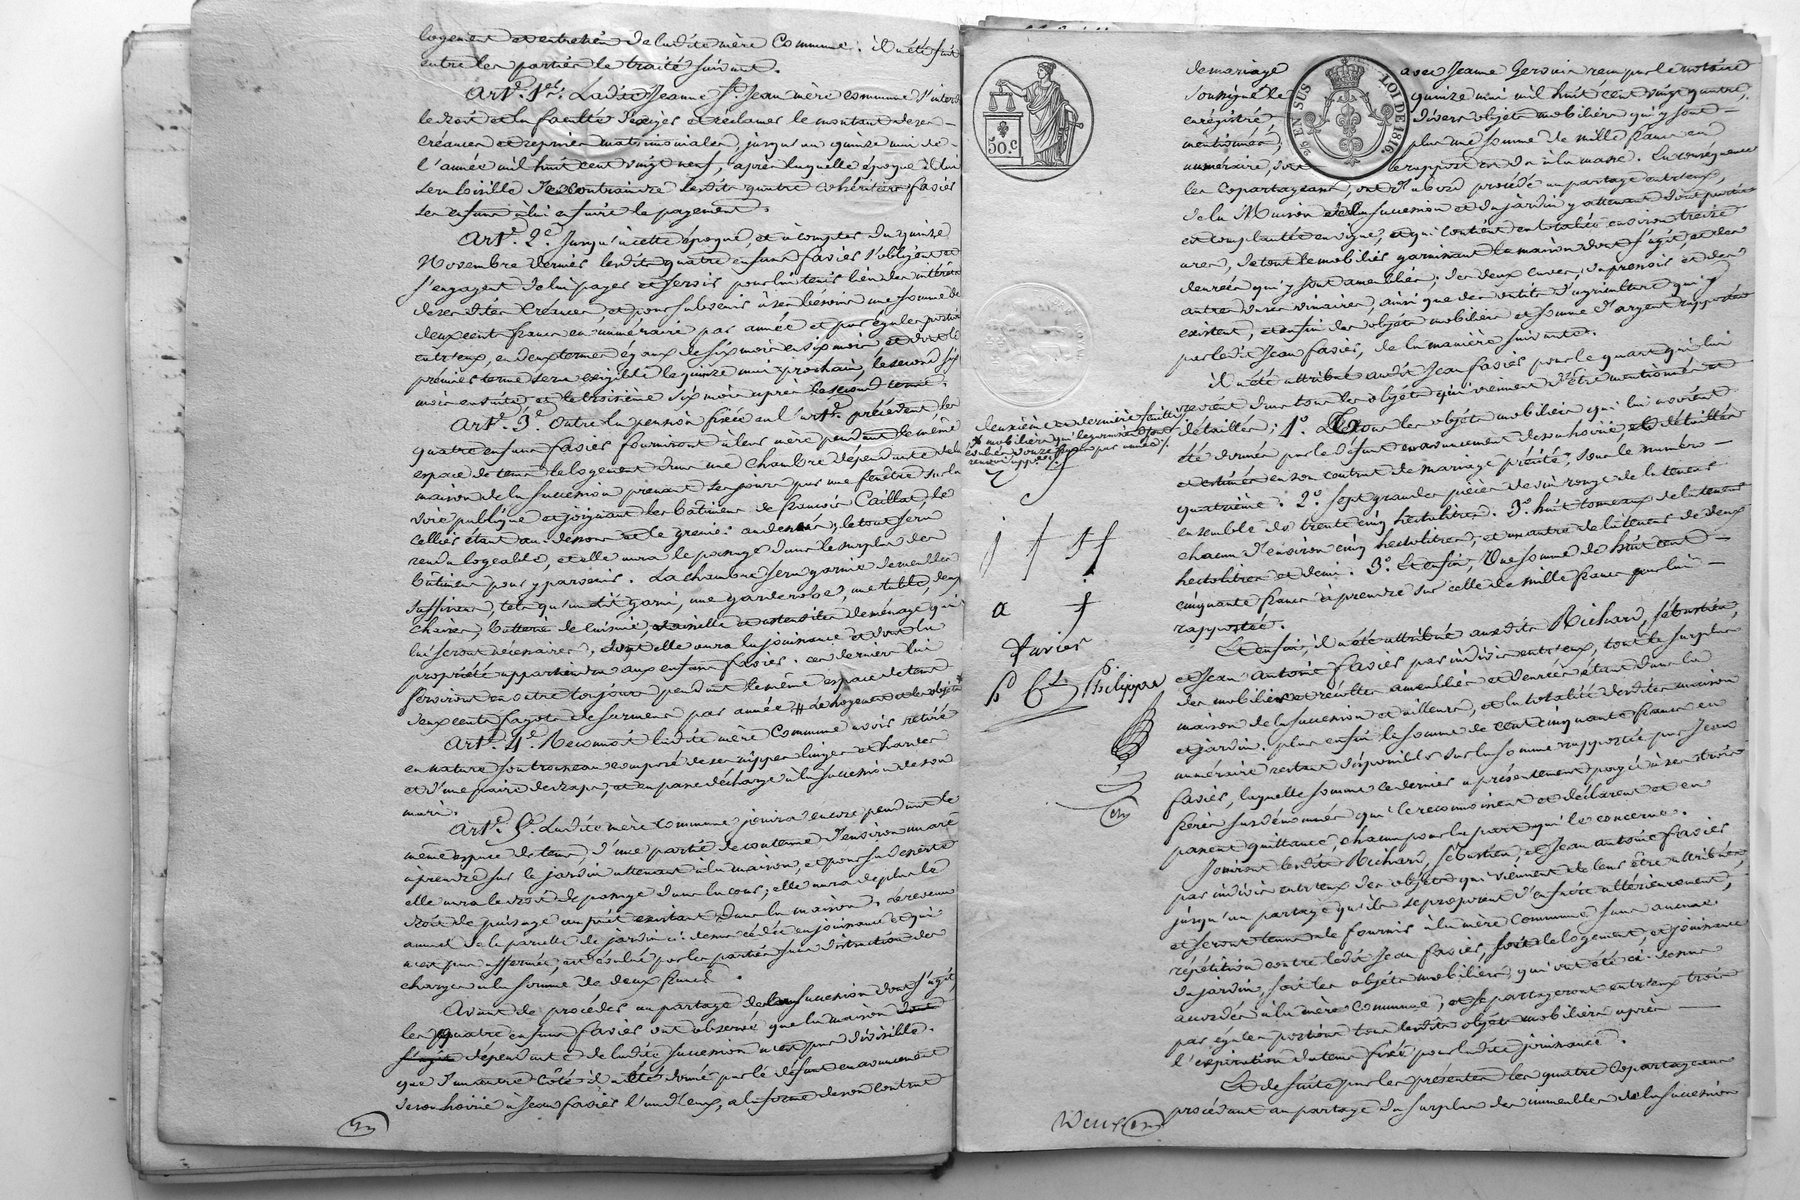 logement et entretien de ladite mère Commune. il a été fait
entre les parties le traité suivant.
Art.e 1er. Ladite Jeanne St. Jean mère commune s'interdit
le droit et la faculté d'exiger et réclamer le montant de ses
créances et reprises matrimoniales, jusqu'au quinze mai de
l'année mil huit cent vingt neuf, après laquelle époque il lui
sera loisible de contraindre lesdits quatre cohéritiers favier
ses enfans à lui en faire le payement.
Art.e 2e. Jusqu'à cette époque, et à compter du quinze
Novembre dernier lesdits quatre enfans favier s'obligent et
s'engagent de lui payer et servir pour lui tenir lieu des intérêts
desesdites Créances, et pour subvenir à ses besoins une somme de
deux cent francs en numéraire par année et par égales portions
entr'eux, en deux termes égaux de six mois en six mois et dont le
premier terme sera exigible le quinze mai prochain, le second six
mois ensuite et le troisième six mois après le second terme.
Art.e 3e. Outre la pension fixée en l'art.e précédent, les
quatre enfans favier fourniront à leur mère pendant le même
espace de tems le logement dans une chambre dépendante de la
maison de la succession prenant ses jours par une fenêtre sur la
voie publique et joignant les bâtimens de françois Caillat, le
cellier étant au dessous et le grenier au dessus, le tout sera
rendu logeable, et elle aura le passage dans le surplus des
bâtimens pour y parvenir. La chambre sera garnie de meubles
suffisans, tels qu'un lit garni, une garderobe, une table, deux
chaises, batterie de cuisine, vaisselle et ustensiles de ménage qui
lui seront nécessaires, dont elle aura la jouissance et dont la
propriété appartiendra aux enfans favier. ces derniers lui
serviront en outre toujours pendant le même espace de tems
deux cents fagots de sarmens par année # Le logement et les objets
Art.e 4e. Reconnoit ladite mère Commune avoir retiré
en nature son trousseau composé de ses nippes linges et hardes
et d'une paire de draps, et en passe décharge à la succession de son
mari.
Art.e 5e. Ladite mère commune jouira encore pendant le
même espace de tems, d'une partie de contenue d'environ un are
à prendre sur le jardin attenant à la maison, et pour sa desserte
elle aura le droit de passage dans la cour; elle aura de plus le
droit de puisage au puit existant dans la maison. Le revenu
annuel de la parcelle de jardin ci-dessus cédée en jouissance et qui
n'est pas affermée, est évalué par les parties sans distraction des
charges à la somme de deux francs.
Avant de procéder au partage de la succession dont s'agit,
les quatre enfans favier ont observé que la maison dont
s'agit dépendante de ladite succession n'est pas divisible.
que d'un autre côté il a été donné par le défunt en avancement
de son hoirie à Jean favier l'un d'eux, a la forme de son contrat
50.c
EN SUS
LOI DE 1816
de mariage avec Jeanne Gervais reçu par le notaire
soussigné le quinze mai mil huit cent vingt quatre,
enregistré divers objets mobiliers qui y sont
mentionnés, plus une somme de mille francs en
numéraire, dont le rapport est dû à la masse. En conséquence
les Copartageans, ont d'abord procédé au partage entr'eux,
de la Maison de la succession et du jardin y attenant dont partie
est complantée en vigne, et qui contient en totalité environ treize
ares, de tout le mobilier garnissant la maison dont s'agit, et des
denrées qui y sont ameublées; des deux cuves, du pressoir et des
autres vases vinaires, ainsi que des outils d'agriculture qui y
existent, et enfin des objets mobiliers et somme d'argent rapportés
par ledit Jean favier, de la manière suivante.
il a été attribué audit Jean favier pour le quart qui lui
revient dans tous les objets qui viennent d'être mentionnés et
détaillés; 1o. tous les objets mobiliers qui lui avoient
été donnés par le défunt en avancement de son hoirie, et détaillés
et estimés en son contrat de mariage précité, sous le numéro
quatrième: 2o. Sept grandes pièces de vin rouge de la teneur
ensemble de trente cinq hectolitres. 3o. huit tonneaux de la teneur
chacun d'environ cinq hectolitres, et un autre de la teneur de deux
hectolitres et demi. 3o. Et enfin, Une somme de huit cent
cinquante francs à prendre sur celle de mille francs par lui
rapportée.
Et enfin, il a été attribué auxdits Richard, Sébastien,
et Jean Antoine favier par indivis entr'eux, tout le surplus
des mobiliers et récoltes ameublées et denrées étant dans la
maison de la succession et ailleurs, et la totalité desdites maison
et jardin. plus enfin la somme de cent cinquante francs en
numéraire restant disponible sur la somme rapportée par Jean
favier, laquelle somme ce dernier a présentement payée à ses trois
frères susdénommés qui le reconnoissent et déclarent et en
passent quittance, chacun pour la part qui le concerne.
Jouiront lesdits Richard, Sébastien, et Jean Antoine favier
par indivis entr'eux des objets qui viennent de leur être attribués,
jusqu'au partage qu'ils se proposent d'en faire ultérieurement,
et seront tenus de fournir à la mère Commune sans aucune
répétition contre ledit Jean favier, soit le logement, et jouissance
du jardin, soit les objets mobiliers, qui ont été ci-dessus
accordés à la mère Commune, et se partageront entr'eux trois
par égales portions tous lesdits objets mobiliers après
l'expiration du tems fixé pour ladite jouissance.
Et de suite par les présentes les quatre Copartageans
procédant au partage du surplus des immeubles de la succession
deuxième et dernière feuille
# mobiliers qui
j
a
favier
Philippe